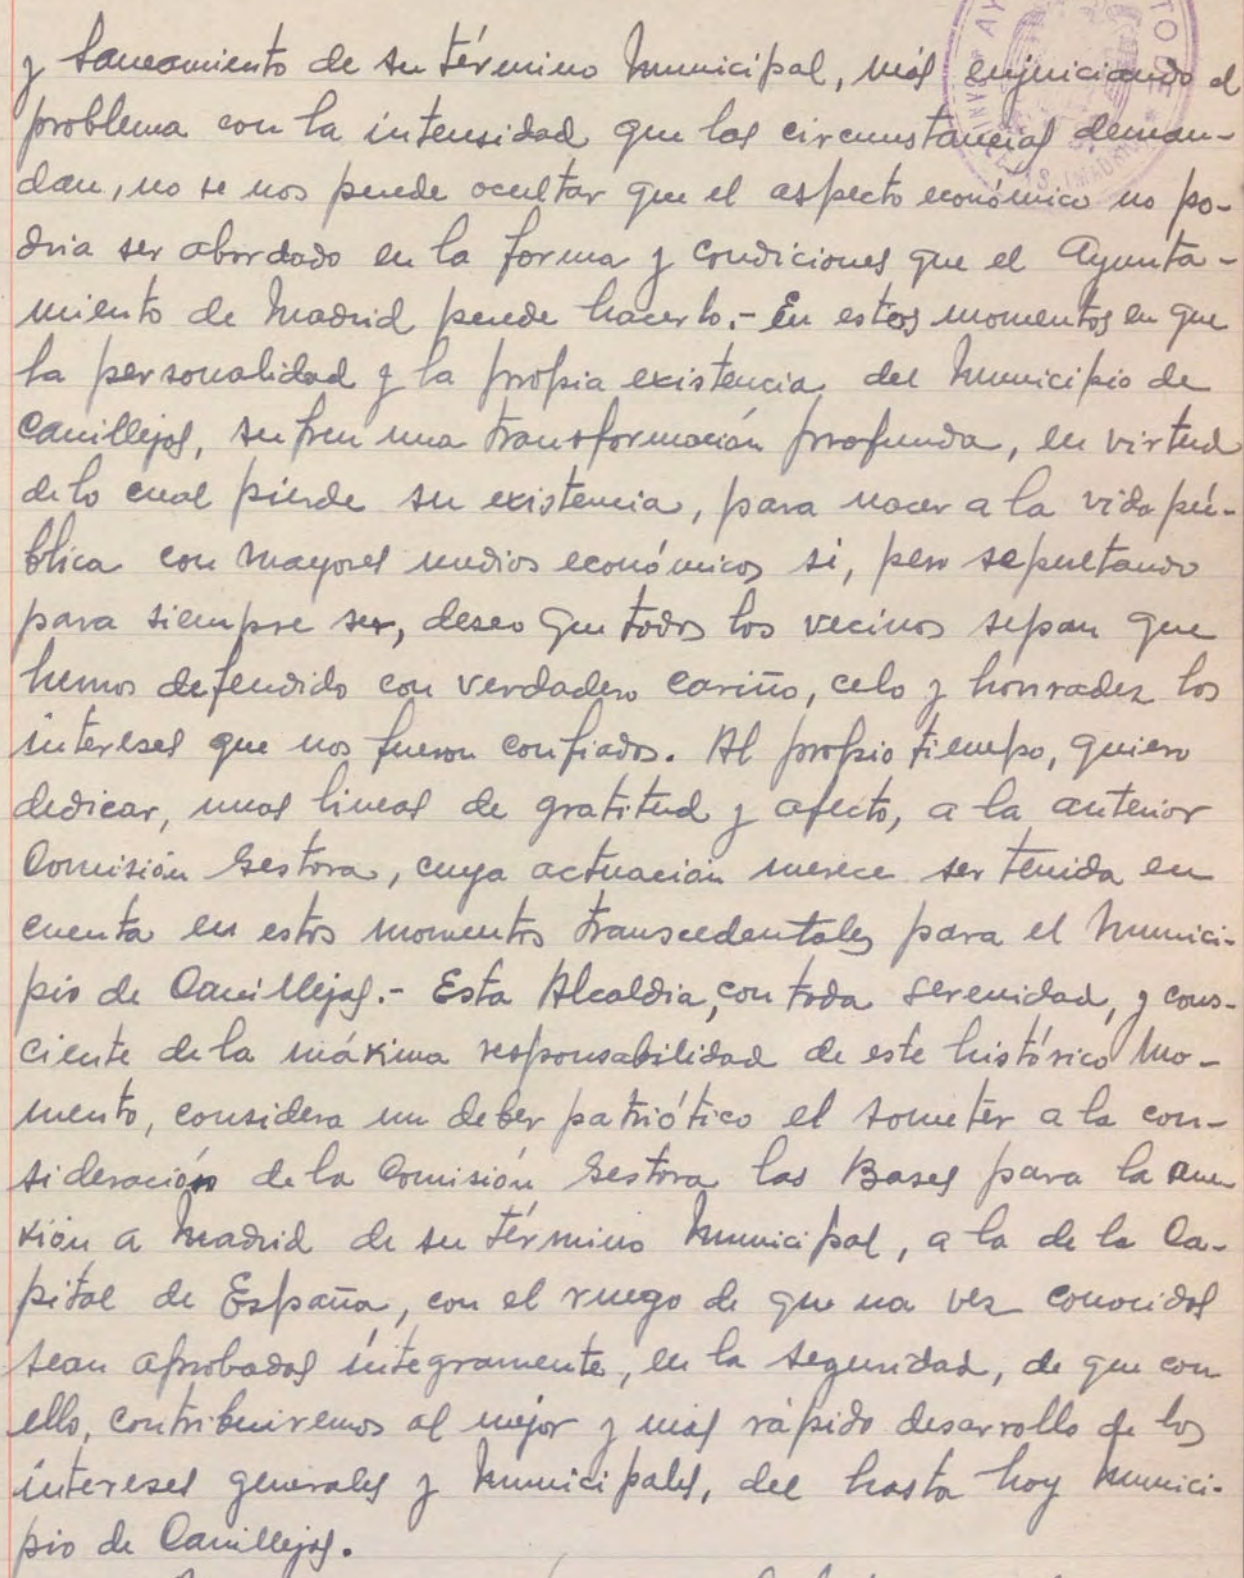 y Saneamiento de su término Municipal, mas enjuiciando el
problema con la intensidad que las circunstancias deman-
dan, no se nos puede ocultar que el aspecto económico no po-
dria ser abordado en la forma y condiciones que el Ayunta-
miento de Madrid puede hacerlo.- En estos momentos en que
la personalidad y la propia existencia del Municipio de
Canillejas, sufren una transformación profunda, en virtud
de lo cual pierde su existencia, para nacer a la vida pú-
blica con mayores medios económicos si, pero sepultando
para siempre ser, deseo que todos los vecinos sepan que
hemos defendido con verdadero cariño, celo y honradez los
intereses que nos fueron confiados. Al propio tiempo, quiero
dedicar, unas lineas de gratitud y afecto, a la anterior
Comisión Gestora, cuya actuación merece ser tenida en
cuenta en estos momentos transcedentales para el Munici-
pio de Canillejas.- Esta Alcaldia, con toda serenidad, y cons-
ciente de la máxima responsabilidad de este histórico mo-
mento, considera un deber patriótico el someter a la con-
sideración de la Comisión Gestora las Bases para la ane-
xión a Madrid de su término Municipal, a la de la Ca-
pital de España, con el ruego de que na vez conocidas
sean aprobadas integramente, en la seguridad, de que con
ello, contribuiremos al mejor y mas rápido desarrollo de los
intereses generales y Municipales, del hasta hoy Munici-
pio de Canillejas.